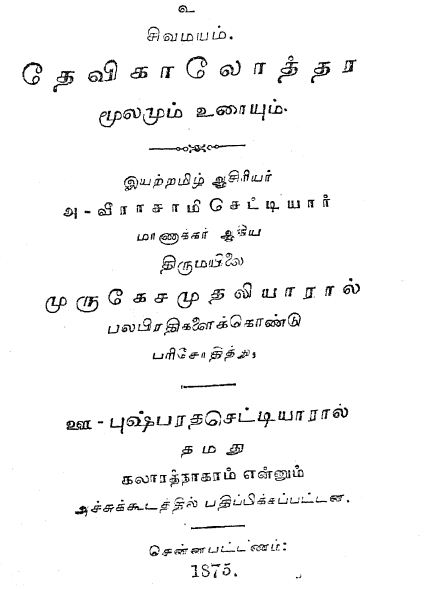 உ
சிவமயம்.
தேவிகாலோத்தர
மூலமும் உரையும்.
இயற்றமிழ் ஆசிரியர்
அ - வீராசாமிசெட்டியார்
மாணாக்கர் ஆகிய
திருமயிலை
முருகேசமுதலியாரால்
பலபிரதிகளைக்கொண்டு
பரிசோதித்து,
ஊ - புஷ்பரதசெட்டியாரால்
தமது
கலாரத்நாகரம் என்னும்
அச்சுக்கூடத்தில் பதிப்பிக்கப்பட்டன.
சென்னபட்டணம்:
1875.